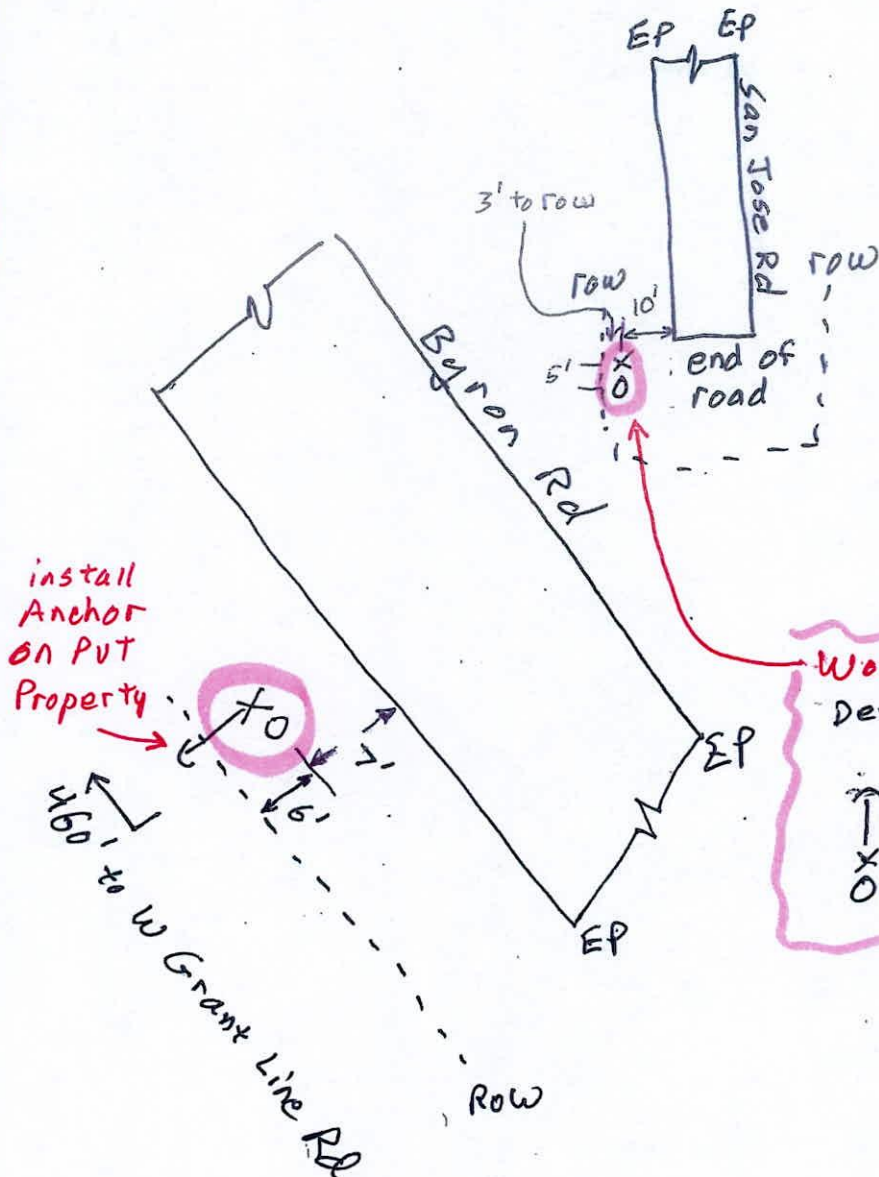 EP EP
San Jose Rd
3' to row
row
10'
row
5'
X
O
end of
road
Byron Rd
install
Anchor
on Put
Property
X O
7'
6'
EP
EP
460' to W Grant Line Rd
Row
Wo
De
X
O